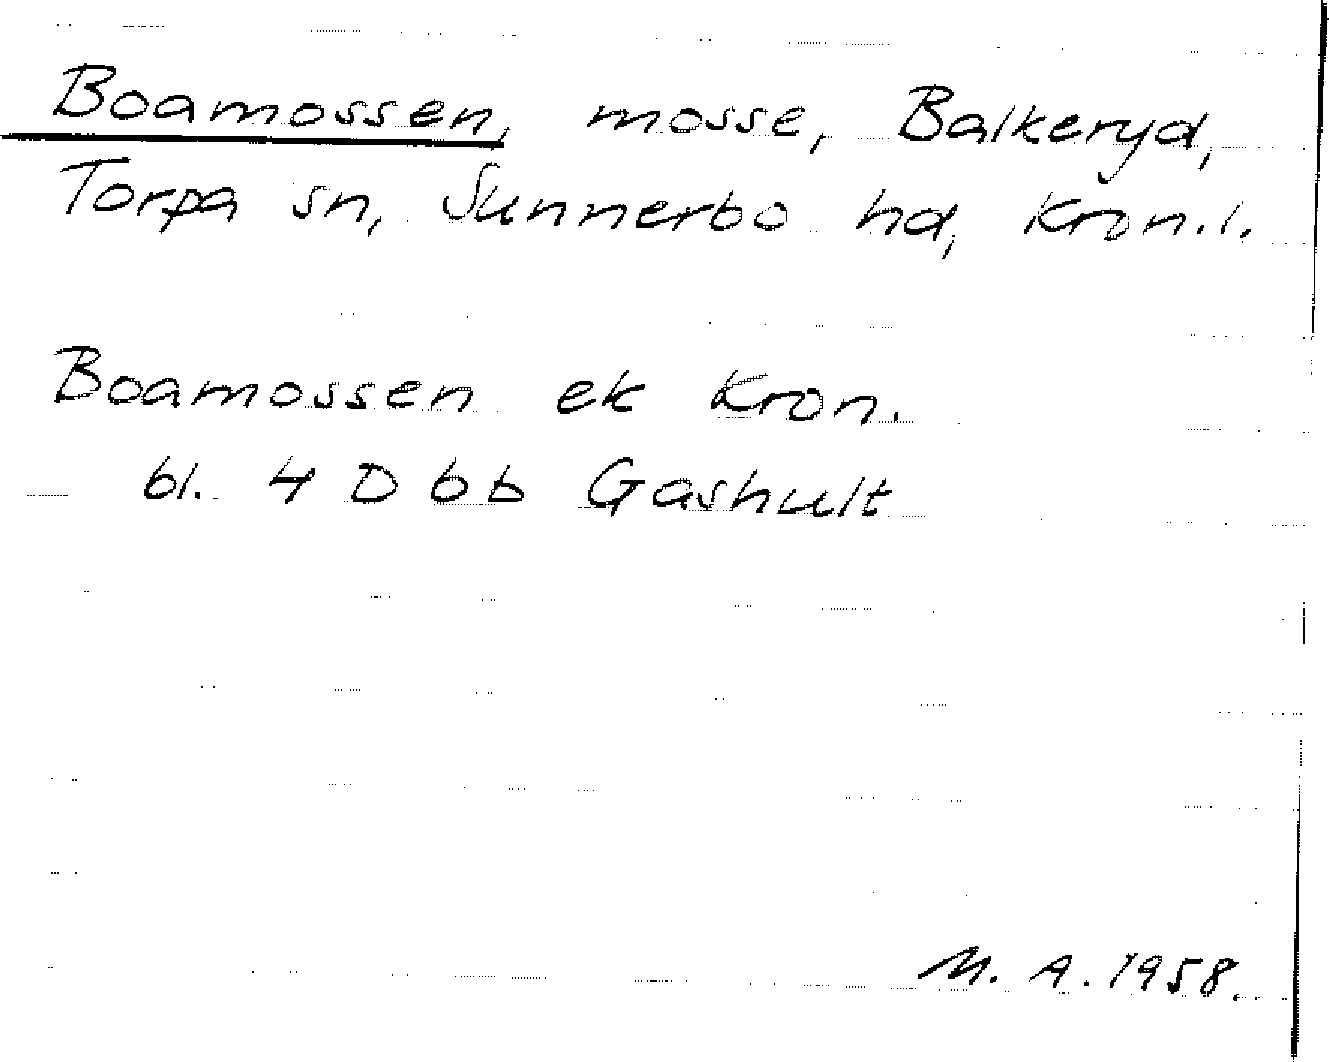 Boamossen, mosse, Balkeryd,
Torpa sn, Sunnerbo hd, Kron.l.
Boamossen ek Kron.
bl. 4 D 6 b Gashult
M. A. 1958.